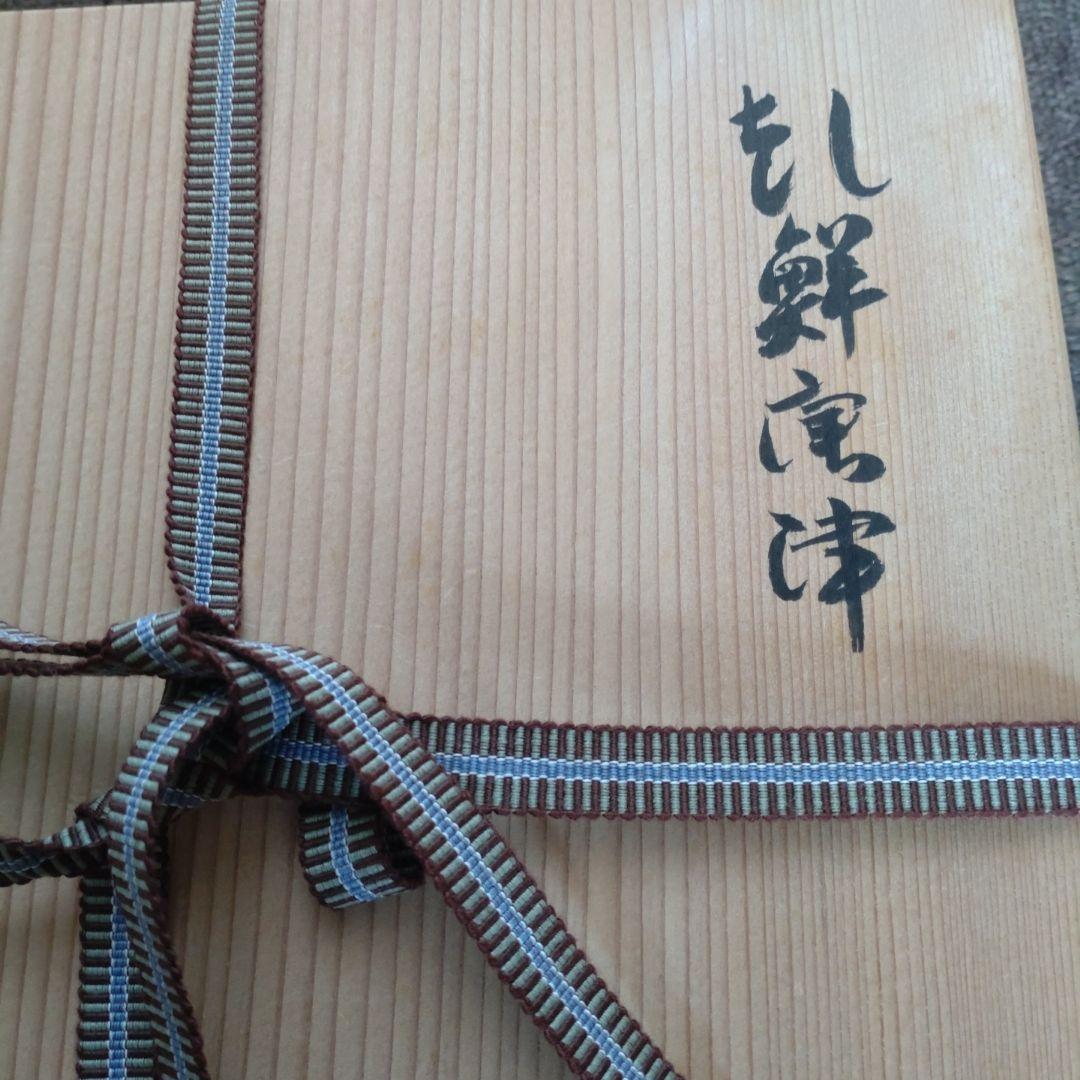 朝鮮唐津